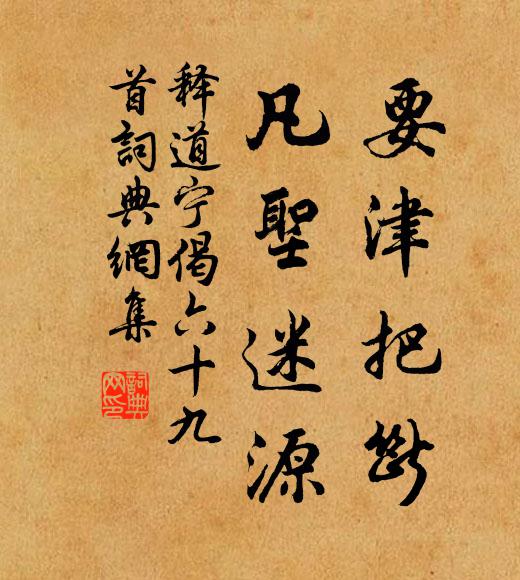 要津把斷
凡聖迷源
释道宁偈六十九
首詞典網集
詞典
网印